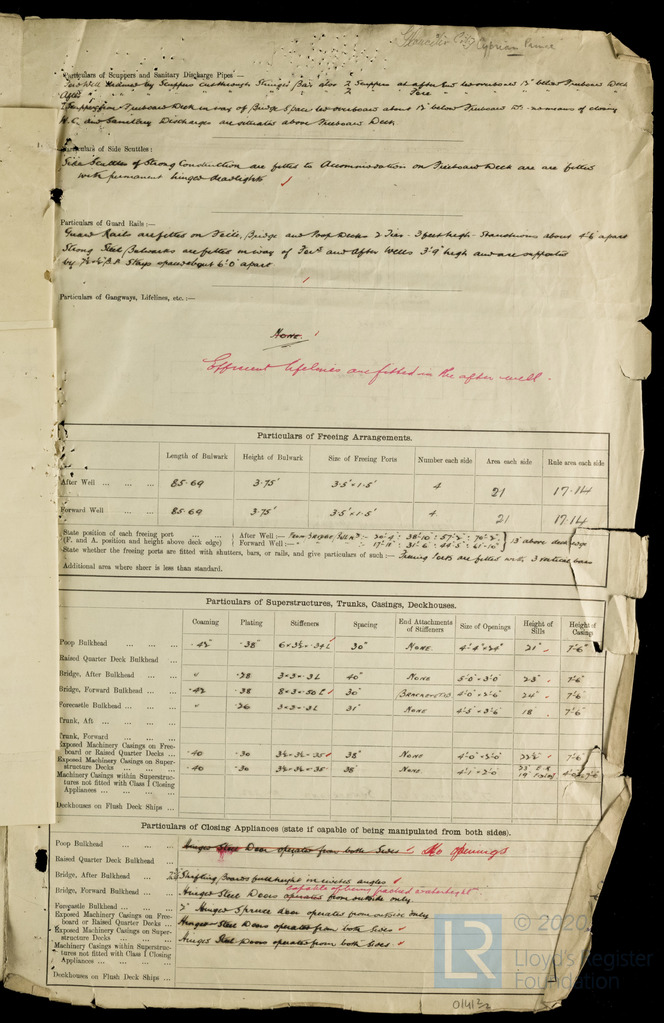 Gloucester City Cyprian Prince
Particulars of Scuppers and Sanitary Discharge Pipes —
Fore Well drained by Scuppers cut through Stringer Bar also 2 Scuppers at after End led overboard 13" below Freeboard Deck
After " " " " " " 2 " Fore " " " " "
Scuppers from Freeboard Deck in way of Bridge Space led overboard about 13" below Freeboard Dk no means of closing
W.C. and Sanitary Discharges are situated above Freeboard Deck
Particulars of Side Scuttles :
Side Scuttles of Strong Construction are fitted to Accommodation on Freeboard Deck are are fitted
with permanent hinged deadlights
Particulars of Guard Rails :—
Guard Rails are fitted on Fo'cle, Bridge and Poop Decks 2 Tier - 3 feet high - Stanchions about 4'6" apart
Strong Steel Bulwarks are fitted in way of Fore and After Wells 3'9" high and are supported
by Stays spaced about 6'0" apart
Particulars of Gangways, Lifelines, etc. :—
None.
Efficient lifelines are fitted in the after well.
Particulars of Freeing Arrangements.
Length of Bulwark Height of Bulwark Size of Freeing Ports Number each side Area each side Rule area each side
After Well ... ... ... 85.69 3.75' 3.5' × 1.5' 4 21 17.14
Forward Well ... ... 85.69 3.75' 3.5' × 1.5' 4. 21 17.14
State position of each freeing port ... ... After Well :— From Bridge Blkhd 20'4" : 38'10" : 57'2" : 70'2" 13" above deck edge
(F. and A. position and height above deck edge) Forward Well :— " " 17'11" : 31'6" : 44'5" : 61'10"
State whether the freeing ports are fitted with shutters, bars, or rails, and give particulars of such :— Freeing Ports are fitted with 3 vertical bars
Additional area where sheer is less than standard.
Particulars of Superstructures, Trunks, Casings, Deckhouses.
Coaming Plating Stiffeners Spacing End Attachments of Stiffeners Size of Openings Height of Sills Height of Casings
Poop Bulkhead ... ... ... .42" .38" 6 × 3½ × .34 L 30" None 4'4" × 24" 21" 7'6"
Raised Quarter Deck Bulkhead ...
Bridge, After Bulkhead ... ... " .28 3 × 3 × .32 40" None 5'0" × 3'0" 23" 7'6"
Bridge, Forward Bulkhead ... ... .42 .38 8 × 3 × .50 L 30" Bracketed 4'0" × 2'6" 24" 7'6"
Forecastle Bulkhead ... ... ... " .26 3 × 3 × .32 31" None 4'5" × 3'6 18 7'6"
Trunk, Aft ... ... ...
Trunk, Forward ... ... ...
Exposed Machinery Casings on Free-
board or Raised Quarter Decks ... .40 .30 3½ × 3½ × .35 38" None 4'0" × 2'0" 22½" 7'6"
Exposed Machinery Casings on Super-
structure Decks ... ... ... .40 .30 3½ × 3½ × .35 38" None 4'1" × 2'0" 7'6"
Machinery Casings within Superstruc-
tures not fitted with Class I Closing
Appliances ... ... ... ...
Deckhouses on Flush Deck Ships ...
Particulars of Closing Appliances (state if capable of being manipulated from both sides).
Poop Bulkhead ... ... ... Hinged Steel Door operates from both Sides No openings
Raised Quarter Deck Bulkhead ...
Bridge, After Bulkhead ... ... Shifting Boards full height in riveted angles
capable of being fastened watertight
Bridge, Forward Bulkhead ... ... Hinged Steel Doors operates from outside only
Forecastle Bulkhead ... ... ... 2" Hinged Spruce door operates from outside only
Exposed Machinery Casings on Free-
board or Raised Quarter Decks ... Hinged Steel Doors operates from both Sides
Exposed Machinery Casings on Super-
structure Decks ... ... ... Hinged Steel Doors operates from both Sides
Machinery Casings within Superstruc-
tures not fitted with Class I Closing
Appliances ... ... ... ...
Deckhouses on Flush Deck Ships ...
© 2020
LR Lloyd's Register
Foundation